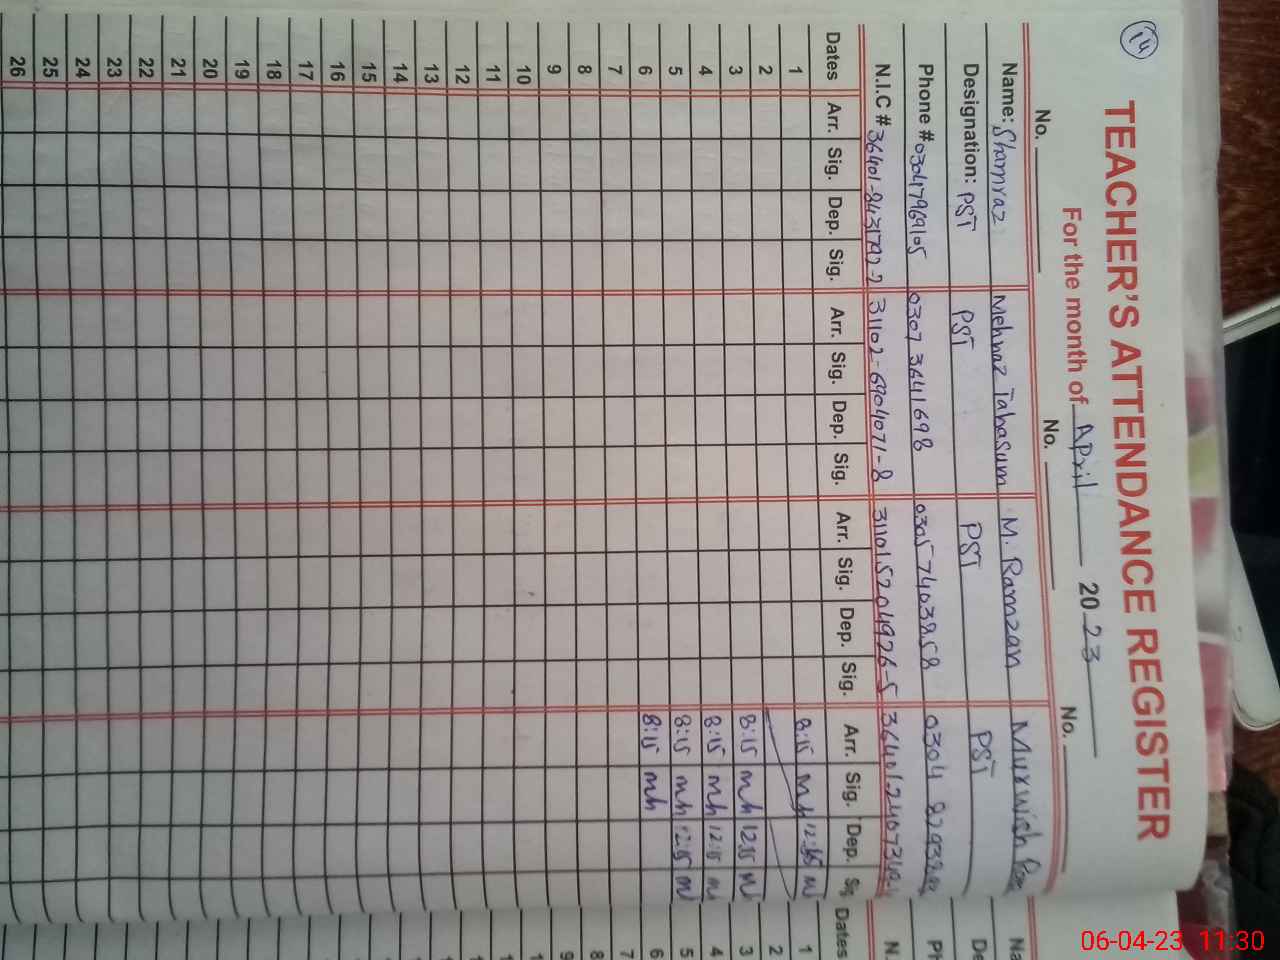 14
TEACHER'S ATTENDANCE REGISTER
For the month of April 2023
No. No. No.
Name: Shamraz Mehnaz Tabasum M. Ramzan Murwish
Designation: PST PST PST PST
Phone # 03047969105 0307 3641698 0305 7403858 0304
N.I.C # 36401-8431792-7 31102-6904071-8 311015204926-5
Dates Arr. Sig. Dep. Sig. Arr. Sig. Dep. Sig. Arr. Sig. Dep. Sig. Arr. Sig. Dep. Sig. Dates
1 8:15 mh 12:15 m 1
2 2
3 8:15 mh 12:15 m 3
4 8:15 mh 12:15 m 4
5 8:15 mh 12:15 m 5
6 8:15 mh 6
7 7
8 8
9 9
10
11
12
13
14
15
16
17
18
19
20
21
22
23
24
25
26
06-04-23 11:30